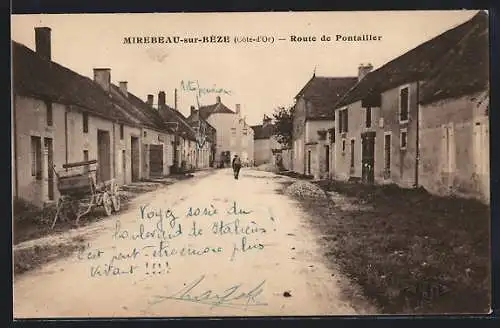 MIREBEAU-sur-BÈZE (Côte-d'Or) — Route de Pontailler
Voyez sortie du
boulevard de Italiens!
c'est peut-être encore plus
vivant !!!